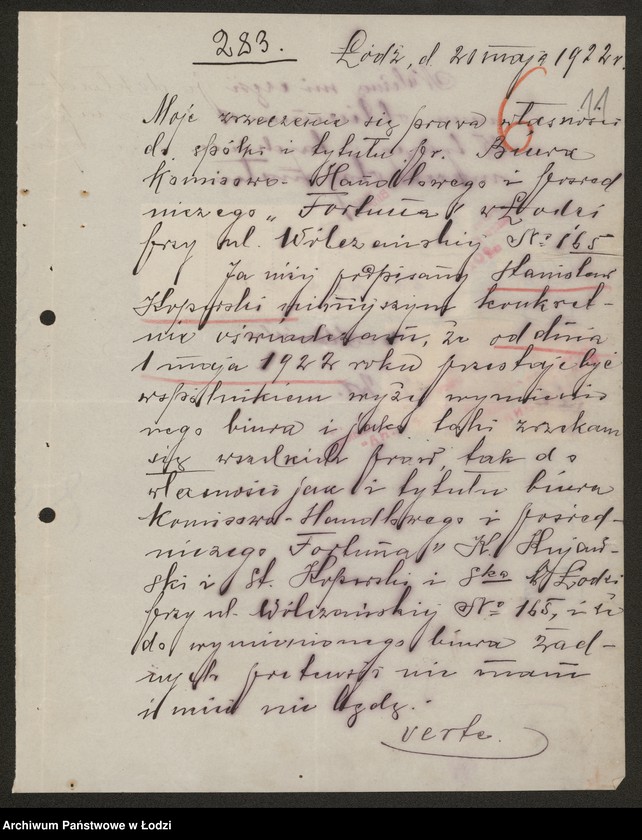 283.
Łódź, d. 20 maja 1922 r.
6 11
Moje zrzeczenie się prawa własności
do spółki i tytułu fr. Biura
Komisowo-Handlowego i Pośred
niczego „Fortuna" w Łodzi
przy ul. Wólczańskiej № 165
Ja niżej podpisany Stanisław
Koperski niniejszym konkret-
nie oświadczam, że od dnia
1 maja 1922 roku przestaję być
wspólnikiem wyżej wymienio
nego biura i jako taki zrzekam
się wszelkich praw, tak do
własności jak i tytułu biura
Komisowo-Handlowego i Pośred-
niczego Fortuna" K. Kujaw-
ski i St. Koperski i S-ka w Łodzi
przy ul. Wólczańskiej № 165, i że
do wymienionego biura żad-
nych pretensji nie mam
i mieć nie będę.
verte.
Archiwum Państwowe w Łodzi